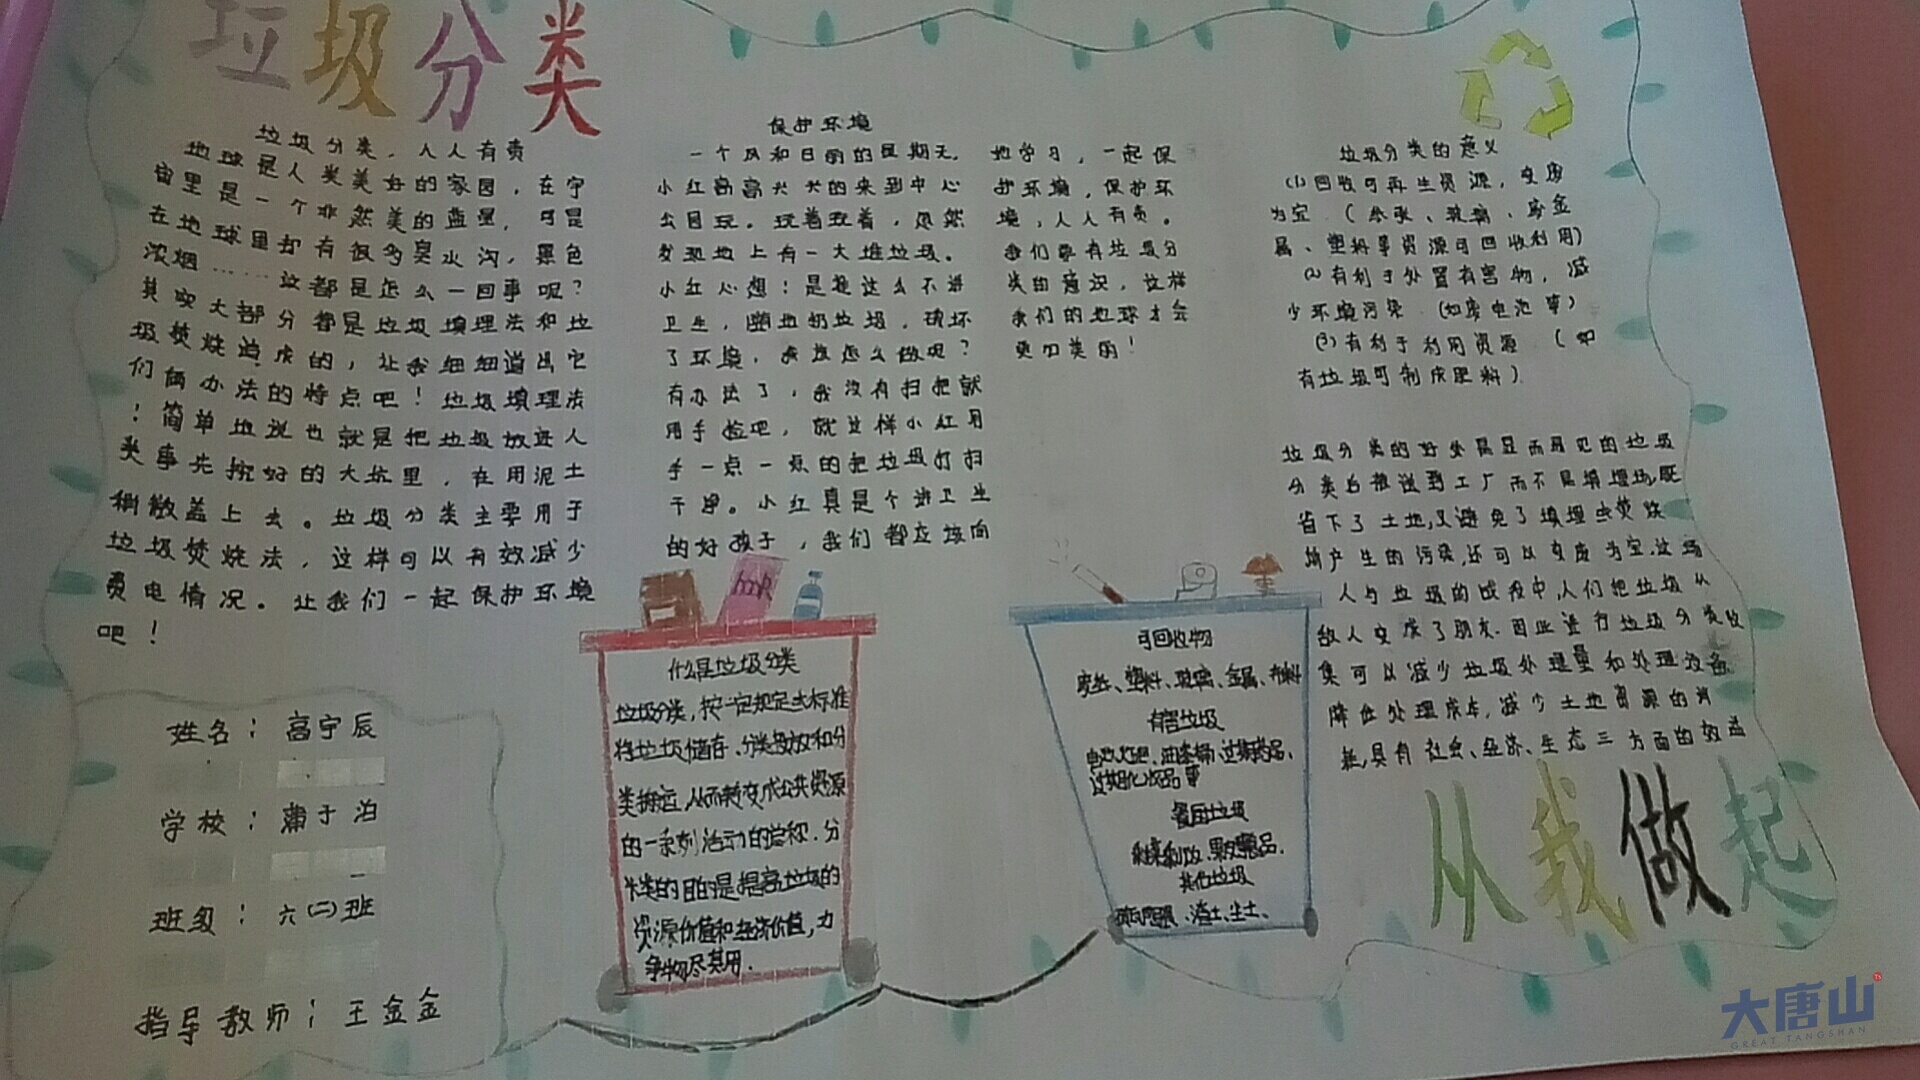 垃圾分类
垃圾分类，人人有责
地球是人类美好的家园，在宇
宙里是一个非然美的蓝星，可是
在地球里却有很多臭水沟，黑色
浓烟……这都是怎么一回事呢？
其实大部分都是垃圾填理法和垃
圾焚烧造成的，让我细细道出它
们俩办法的特点吧！垃圾填理法
！简单地说也就是把垃圾放进人
类事先挖好的大坑里，在用泥土
稍散盖上去。垃圾分类主要用于
垃圾焚烧法，这样可以有效减少
费电情况。让我们一起保护环境
吧！
保护环境
一个风和日丽的星期天，
小红高高兴兴的来到中心
公园玩。玩着玩着，忽然
发现地上有一大堆垃圾。
小红心想：是谁这么不讲
卫生，随地扔垃圾，破坏
了环境，我该怎么做呢？
有办法了，我没有扫把就
用手捡吧，就这样小红用
手一点一点的把垃圾打扫
干净。小红真是个讲卫生
的好孩子，我们都应该向
她学习，一起保
护环境，保护环
境，人人有责。
我们要有垃圾分
类的意识，这样
我们的地球才会
更加美丽！
垃圾分类的意义
(1)回收可再生资源，变废
为宝．（纸张、玻璃、废金
属、塑料等资源可回收利用）
(2)有利于处置有害物，减
少环境污染．（如废电池等）
(3)有利于利用资源．（如
有垃圾可制成肥料）
垃圾分类的好处是显而易见的垃圾
分类后被送到工厂而不是填埋场，既
省下了土地，又避免了填埋或焚烧
所产生的污染，还可以变废为宝，这场
人与垃圾的战役中，人们把垃圾从
敌人变成了朋友．因此进行垃圾分类收
集可以减少垃圾处理量和处理设备
降低处理成本，减少土地资源的消
耗，具有社会、经济、生态三方面的效益
什么是垃圾分类
垃圾分类，按一定规定或标准
将垃圾储存、分类投放和分
类搬运，从而转变成公共资源
的一系列活动的总称．分
类的目的是提高垃圾的
资源价值和经济价值，力
争物尽其用．
可回收物
废纸、塑料、玻璃、金属、布料
有害垃圾
过期化妆品等
餐厨垃圾
其他垃圾
渣土、尘土、
从我做起
姓名：高宇辰
学校：蒲于泊
班级：六(二)班
指导教师：王金金
大唐山
GREAT TANGSHAN